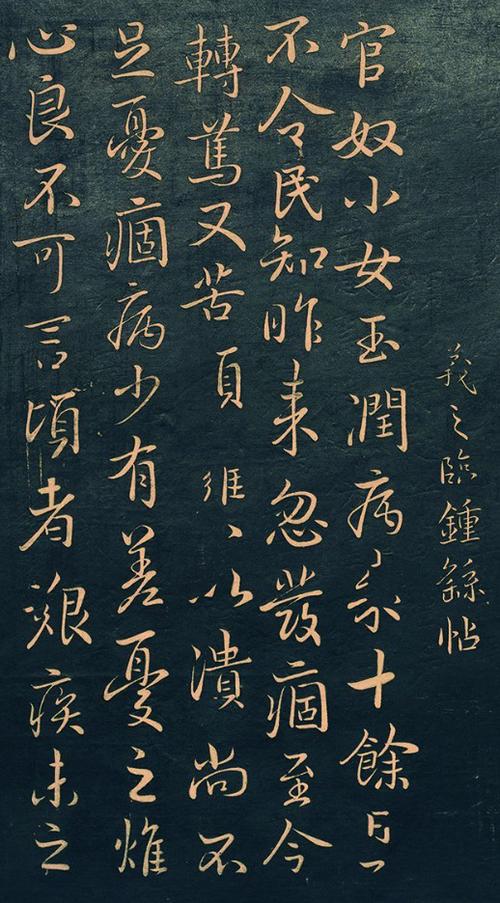 羲之臨鍾繇帖
官奴小女玉潤病來十餘日
不令民知昨來忽發痼至今
轉篤又苦頭癰以潰尚不
足憂痼病少有差憂之燋
心良不可言頃者艱疾未之